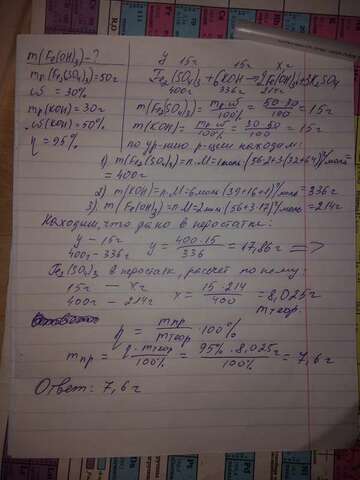 m(Fe(OH)₃) = ?
mр(Fe₂(SO₄)₃) = 50г
ω = 30%
mр(KOH) = 30г
ω(KOH) = 50%
η = 95%
y 15г 15г xг
Fe₂(SO₄)₃ + 6KOH → 2Fe(OH)₃ + 3K₂SO₄
400г 336г 214г
m(Fe₂(SO₄)₃) = mр·ω/100% = 50·30/100 = 15г
m(KOH) = mр·ω/100% = 30·50/100 = 15г
по ур-нию р-ции находим:
1) m(Fe₂(SO₄)₃) = n·M = 1моль·(56·2+3(32+64))г/моль =
= 400г
2) m(KOH) = n·M = 6моль·(39+16+1)г/моль = 336г
3) m(Fe(OH)₃) = n·M = 2моль·(56+3·17)г/моль = 214г
Находим, что дано в недостатке:
y – 15г
400г – 336г y = 400·15/336 = 17,86г ⇒
Fe₂(SO₄)₃ в недостатке, расчёт по нему:
15г — xг
400г – 214г x = 15·214/400 = 8,025г
mтеор
η = mпр/mтеор · 100%
mпр = η·mтеор/100% = 95%·8,025г/100% = 7,6г
Ответ: 7,6г